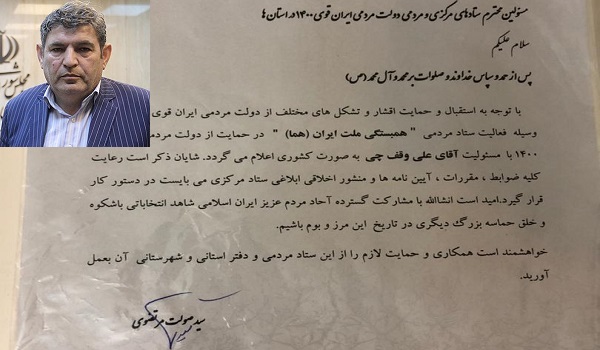 مسئولین محترم ستادهای مرکزی و مردمی دولت مردمی ایران قوی ۱۴۰۰ در استان ها
سلام علیکم
پس از حمد و سپاس خداوند و صلوات بر محمد و آل محمد (ص)
با توجه به استقبال و حمایت اقشار و تشکل های مختلف از دولت مردمی ایران قوی
وسیله فعالیت ستاد مردمی " همبستگی ملت ایران (هما) " در حمایت از دولت مردمی
۱۴۰۰ با مسئولیت آقای علی وقف چی به صورت کشوری اعلام می گردد. شایان ذکر است رعایت
کلیه ضوابط ، مقررات ، آیین نامه ها و منشور اخلاقی ابلاغی ستاد مرکزی می بایست در دستور کار
قرار گیرد.امید است انشاالله با مشارکت گسترده آحاد مردم عزیز ایران اسلامی شاهد انتخاباتی باشکوه
و خلق حماسه بزرگ دیگری در تاریخ این مرز و بوم باشیم.
خواهشمند است همکاری و حمایت لازم را از این ستاد مردمی و دفتر استانی و شهرستانی آن بعمل
آورید.
سید صولت مرتضوی
مجلس شورای